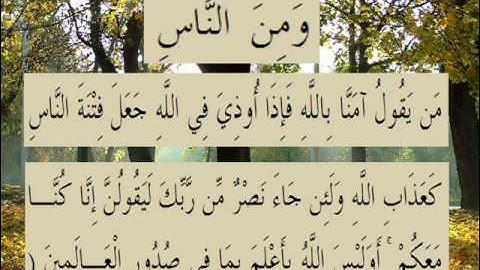 وَمِنَ النَّاسِ
مَن يَقُولُ آمَنَّا بِاللَّهِ فَإِذَا أُوذِيَ فِي اللَّهِ جَعَلَ فِتْنَةَ النَّاسِ
كَعَذَابِ اللَّهِ وَلَئِن جَاءَ نَصْرٌ مِّن رَّبِّكَ لَيَقُولُنَّ إِنَّا كُنَّــا
مَعَكُمْ ۚ أَوَلَيْسَ اللَّهُ بِأَعْلَمَ بِمَا فِي صُدُورِ الْعَــالَمِينَ (